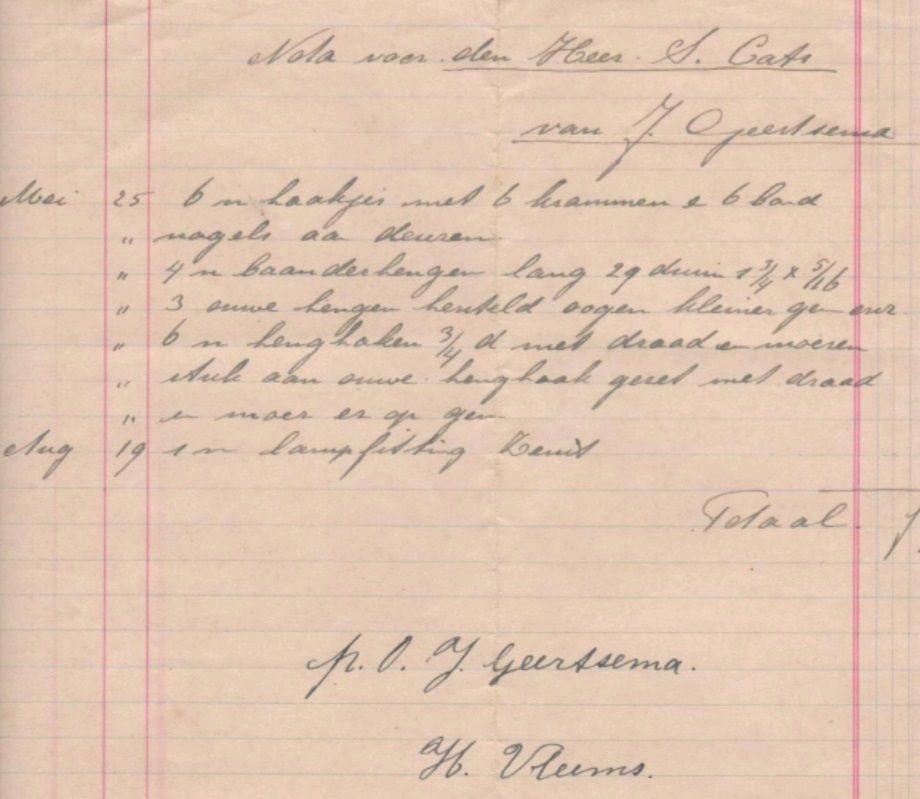 Nota voor den Heer. S. Cats
van J. Geertsema
Mei 25 6 n haakjes met 6 krammen e 6 band
" nagels aa deuren
" 4 n baanderhengen lang 29 duim 1 3/4 x 5/16
" 3 ouwe hengen hersteld oogen kleiner gem enz.
" 6 n henghaken 3/4 d met draad en moeren
" stuk aan ouwe henghaak gezet met draad
" en moer er op gem
Aug 19 1 n lampfitting
Totaal. f
p. O. J. Geertsema.
H. Vleems.